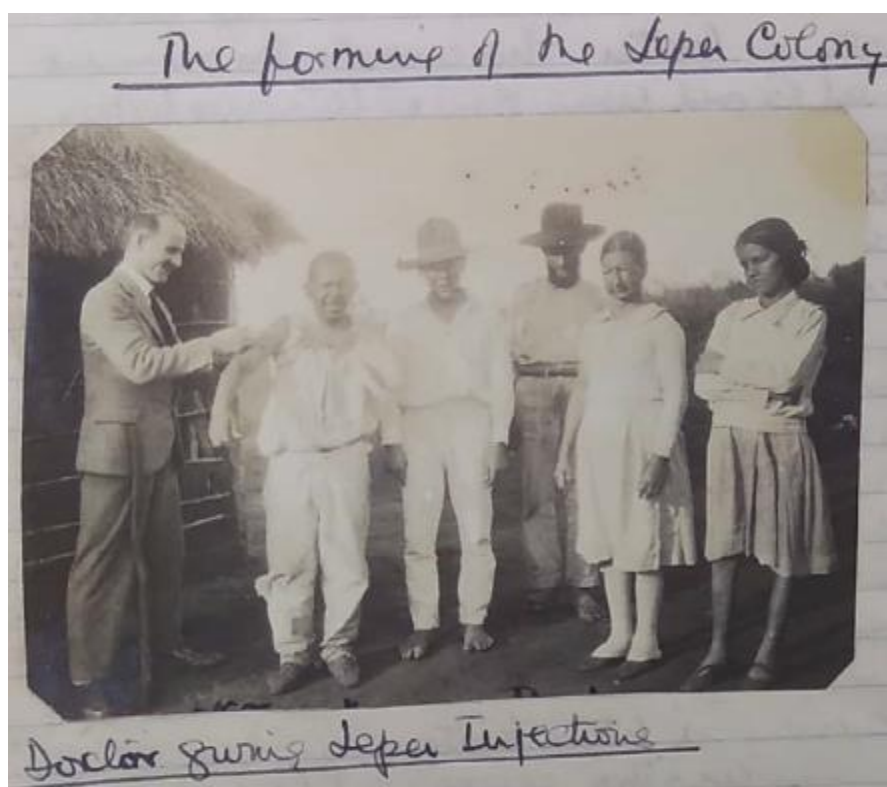 The forming of the Leper Colony
Doctor giving Leper Injections